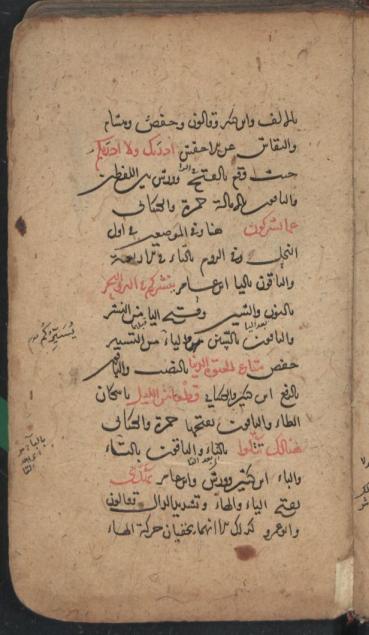 بالالف وابوبكر وقالون وحفص وهشام
والنقاش عن الاخفش ادريك ولا ادريكم
حيث وقع بالفتح وورش بين اللفظين
والباقون بالامالة حمزة والكسائي
عما يشركون هنا وفي الموضعين في اول
النحل وفي الروم بالتاء في الاربعة
والباقون باليا ابن عامر ينشركم في البر والبحر
بالنون والشين من النشر
والباقون بالسين والياء من التسيير
حفص متاع الحيوة الدنيا بالنصب والباقون
بالرفع ابن كثير والكسائي قطعا من الليل باسكان
الطاء والباقون بفتحها حمزة والكسائي
هنالك تتلوا بالتاء والباقون بالتاء
والباء ابن كثير وورش وابن عامر يهدي
بفتح الياء والهاء وتشديد الدال وقالون
وابو عمرو كذلك الا انهما يخفيان حركة الهاء
يسيركم